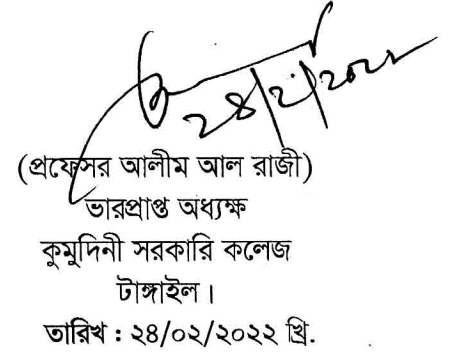 ২৪/২/২০২২
(প্রফেসর আলীম আল রাজী)
ভারপ্রাপ্ত অধ্যক্ষ
কুমুদিনী সরকারি কলেজ
টাঙ্গাইল।
তারিখ : ২৪/০২/২০২২ খ্রি.